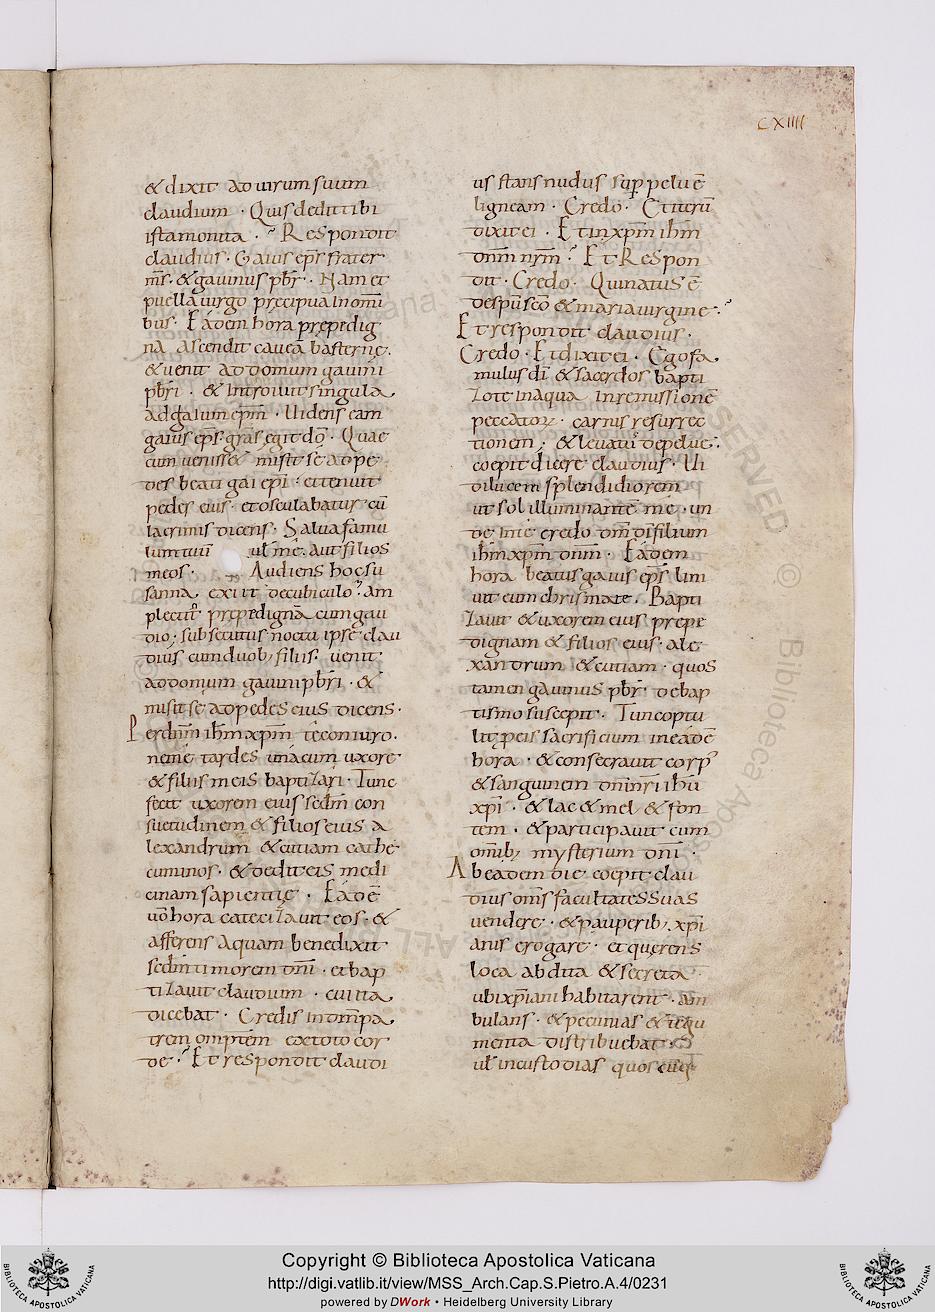 CXIIII
& dixit ad uirum suum
claudium · Quis dedit tibi
ista monita · ? Respondit
claudius · Gaius ep̅s frater
m̅s · & gauinus pb̅r · Nam et
puella uirgo precipua in omi̅
bus · Eadem hora prepedig
na ascendit cauea basterne ·
& uenit ad domum gauini
pb̅ri · & introiuit singula
ad gaium ep̅m · Uidens eam
gaius ep̅s gr̅as egit do̅ · Quae
cum uenisse& misit se ad pe
des beati gai ep̅i · et tenuit
pedes eius · et osculabatur cu̅
lacrimis dicens · Salua famu
lum tuu̅ ul̅ me · aut filios
meos · Audiens hoc su
sanna exiit de cubiculo · am
plectit̅ prepedigna̅ cum gau
dio · subsecutus noctu ipse clau
dius cum duob; filiis · uenit
ad domum gauini pb̅ri · &
misit se ad pedes eius dicens ·
Per dn̅m ih̅m xp̅m te coniuro ·
ne me tardes una cum uxore
& filiis meis baptizari · Tunc
fecit uxorem eius sed̅m con
suetudinem & filios eius a
lexandrum & cutiam cathe
cuminos · & dedit eis medi
cinam sapientie · Eade̅
uo̅ hora catecizauit eos · &
afferens aquam benedixit
sed̅m timorem dn̅i · et bap
tizauit claudium · cui ita
dicebat · Credis in dm̅ pa
trem omp̅tem ex toto cor
de · ? Et respondit claudi
us stans nudus sup̱ pelue̅
ligneam · Credo · Et iteru̅
dixit ei · Et in xp̅m ih̅m
dn̅m nr̅m ? Et Respon
dit · Credo · Qui natus e̅
de sp̅u sc̅o & maria uirgine · ?
Et respondit claudius ·
Credo · Et dixit ei · Ego fa
mulus di̅ & sacerdos bapti
zo te in aqua in remissione̅
peccatoꝝ · carnis resurrec
tionem · & leuatus de pelue ·
coepit dicere claudius · Ui
di lucem splendidiorem
ut sol illuminante̅ me · un
de me credo dm̅ di̅ filium
ih̅m xp̅m dn̅m · Eadem
hora beatus gaius ep̅s lini
uit eum chrismate · Bapti
zauit & uxorem eius prepe
dignam & filios eius · ale
xandrum & cutiam · quos
tamen gauinus pb̅r de bap
tismo suscepit · Tunc optu
lit p̱ eis sacrificium in eade̅
hora · & consecrauit corp'
& sanguinem dn̅i nr̅i ih̅u
xp̅i · & lac & mel & fon
tem · & participauit cum
omib; mysterium dn̅i ·
Ab eadem die coepit clau
dius om̅s facultates suas
uendere · & pauperib; xp̅i
anis erogare · et querens
loca abdita & secreta
ubi xp̅iani habitarent · am
bulans · & pecunias & tegu
menta distribuebat ·
ul̅ in custodias quoscumq;
Copyright © Biblioteca Apostolica Vaticana
http://digi.vatlib.it/view/MSS_Arch.Cap.S.Pietro.A.4/0231
powered by DWork • Heidelberg University Library